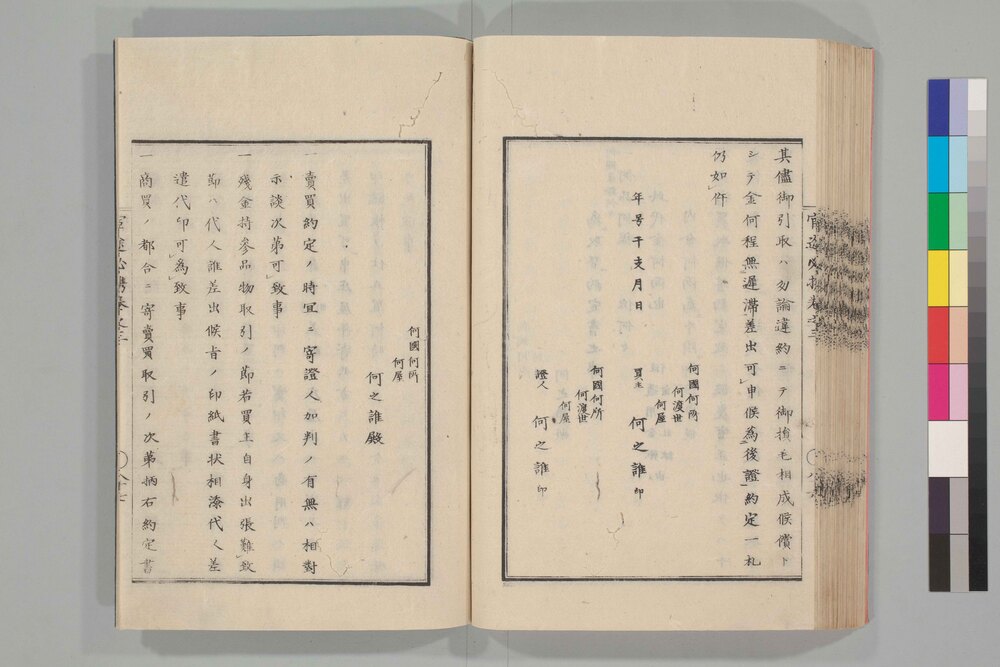 其儘御引取ハ勿論違約ニテ御損毛相成候償ト
シテ金何程無遅滞差出可申候為後證約定一札
仍如件
年号干支月日
何國何所
何渡世
何屋
買主 何之誰印
何國何所
何渡世
何屋
證人 何之誰印
何國何所
何屋
何之誰殿
一賣買約定ノ時冝ニ寄證人加判ノ有無ハ相對
示談次第可致事
一殘金持參品物取引ノ節若買主自身出張難致
節ハ代人誰差出候旨ノ印紙書状相添代人差
遣代印可為致事
一商買ノ都合ニ寄賣買取引ノ次第柄右約定書